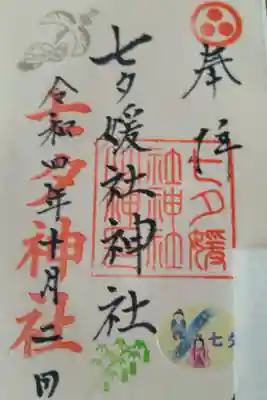 奉拝
七夕媛社神社
七夕媛
社神社
七夕神社
令和四年十月二日
七夕